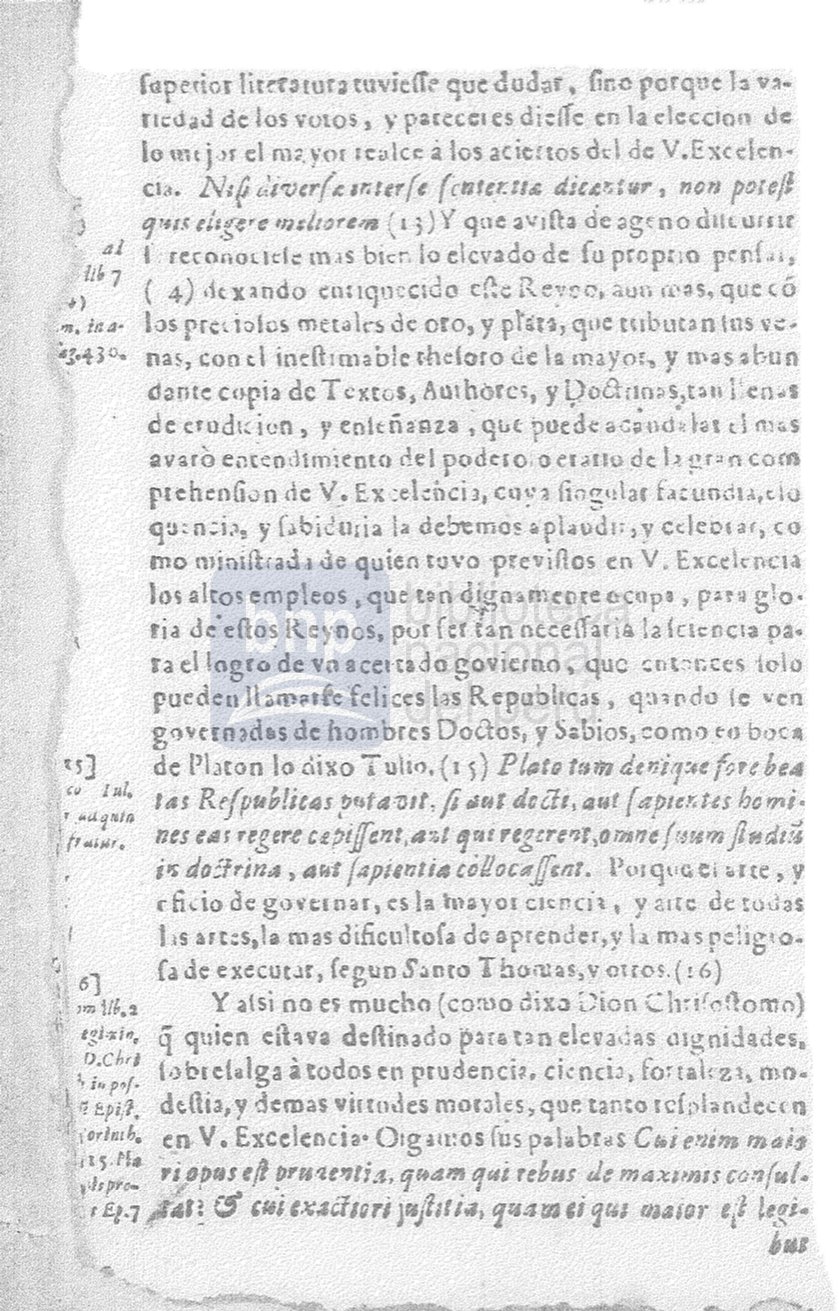 superior literatura tuviesse que dudar, sino porque la va-
riedad de los votos, y pareceres diesse en la eleccion de
lo mejor el mayor realce à los aciertos del de V. Excelen-
cia. Nisi diversæ inter se sententiæ dicantur, non potest
quis eligere meliorem (13) Y que avista de ageno discurrir
reconociesse mas bien lo elevado de su proprio pensar,
( 4) dexando enriquecido este Reyno, aun mas, que cõ
los preciosos metales de oro, y plata, que tributan sus ve-
nas, con el inestimable thesoro de la mayor, y mas abun
dante copia de Textos, Authores, y Doctrinas, tan llenas
de erudicion, y enseñanza, que puede acaudalar el mas
avaro entendimiento del poderoso erario de la gran com
prehension de V. Excelencia, cuya singular facundia, elo
quencia, y sabiduria la debemos aplaudir, y celebrar, co
mo ministrada de quien tuvo previstos en V. Excelencia
los altos empleos, que tan dignamente ocupa, para glo-
ria de estos Reynos, por ser tan necessaria la sciencia pa-
ra el logro de vn acertado govierno, que entonces solo
pueden llamarse felices las Republicas, quando se ven
governadas de hombres Doctos, y Sabios, como en boca
de Platon lo dixo Tulio. (15) Plato tum denique fore bea
tas Respublicas putavit, si aut docti, aut sapientes homi-
nes eas regere cœpissent, aut qui regerent, omne suum studiũ
in doctrina, aut sapientia collocassent. Porque el arte, y
oficio de governar, es la mayor ciencia, y arte de todas
las artes, la mas dificultosa de aprender, y la mas peligro-
sa de executar, segun Santo Thomas, y otros. (16)
Y assi no es mucho (como dixo Dion Chrisostomo)
q̃ quien estava destinado para tan elevadas dignidades,
sobresalga à todos en prudencia, ciencia, fortaleza, mo-
destia, y demas virtudes morales, que tanto resplandecen
en V. Excelencia. Oigamos sus palabras Cui enim maio
ri opus est prudentia, quam qui rebus de maximis consul-
tat? & cui exactiori justitia, quam ei qui maior est legi-
bus
al
lib 7
4)
m. in a-
23.430.
15]
co Iul.
r ad quin
fratur.
6]
om lib. 2
D. Chri
in pos-
Epist.
orinth.
15. Pla
is pro-
r Ep. 7
bnp biblioteca
nacional
del perú